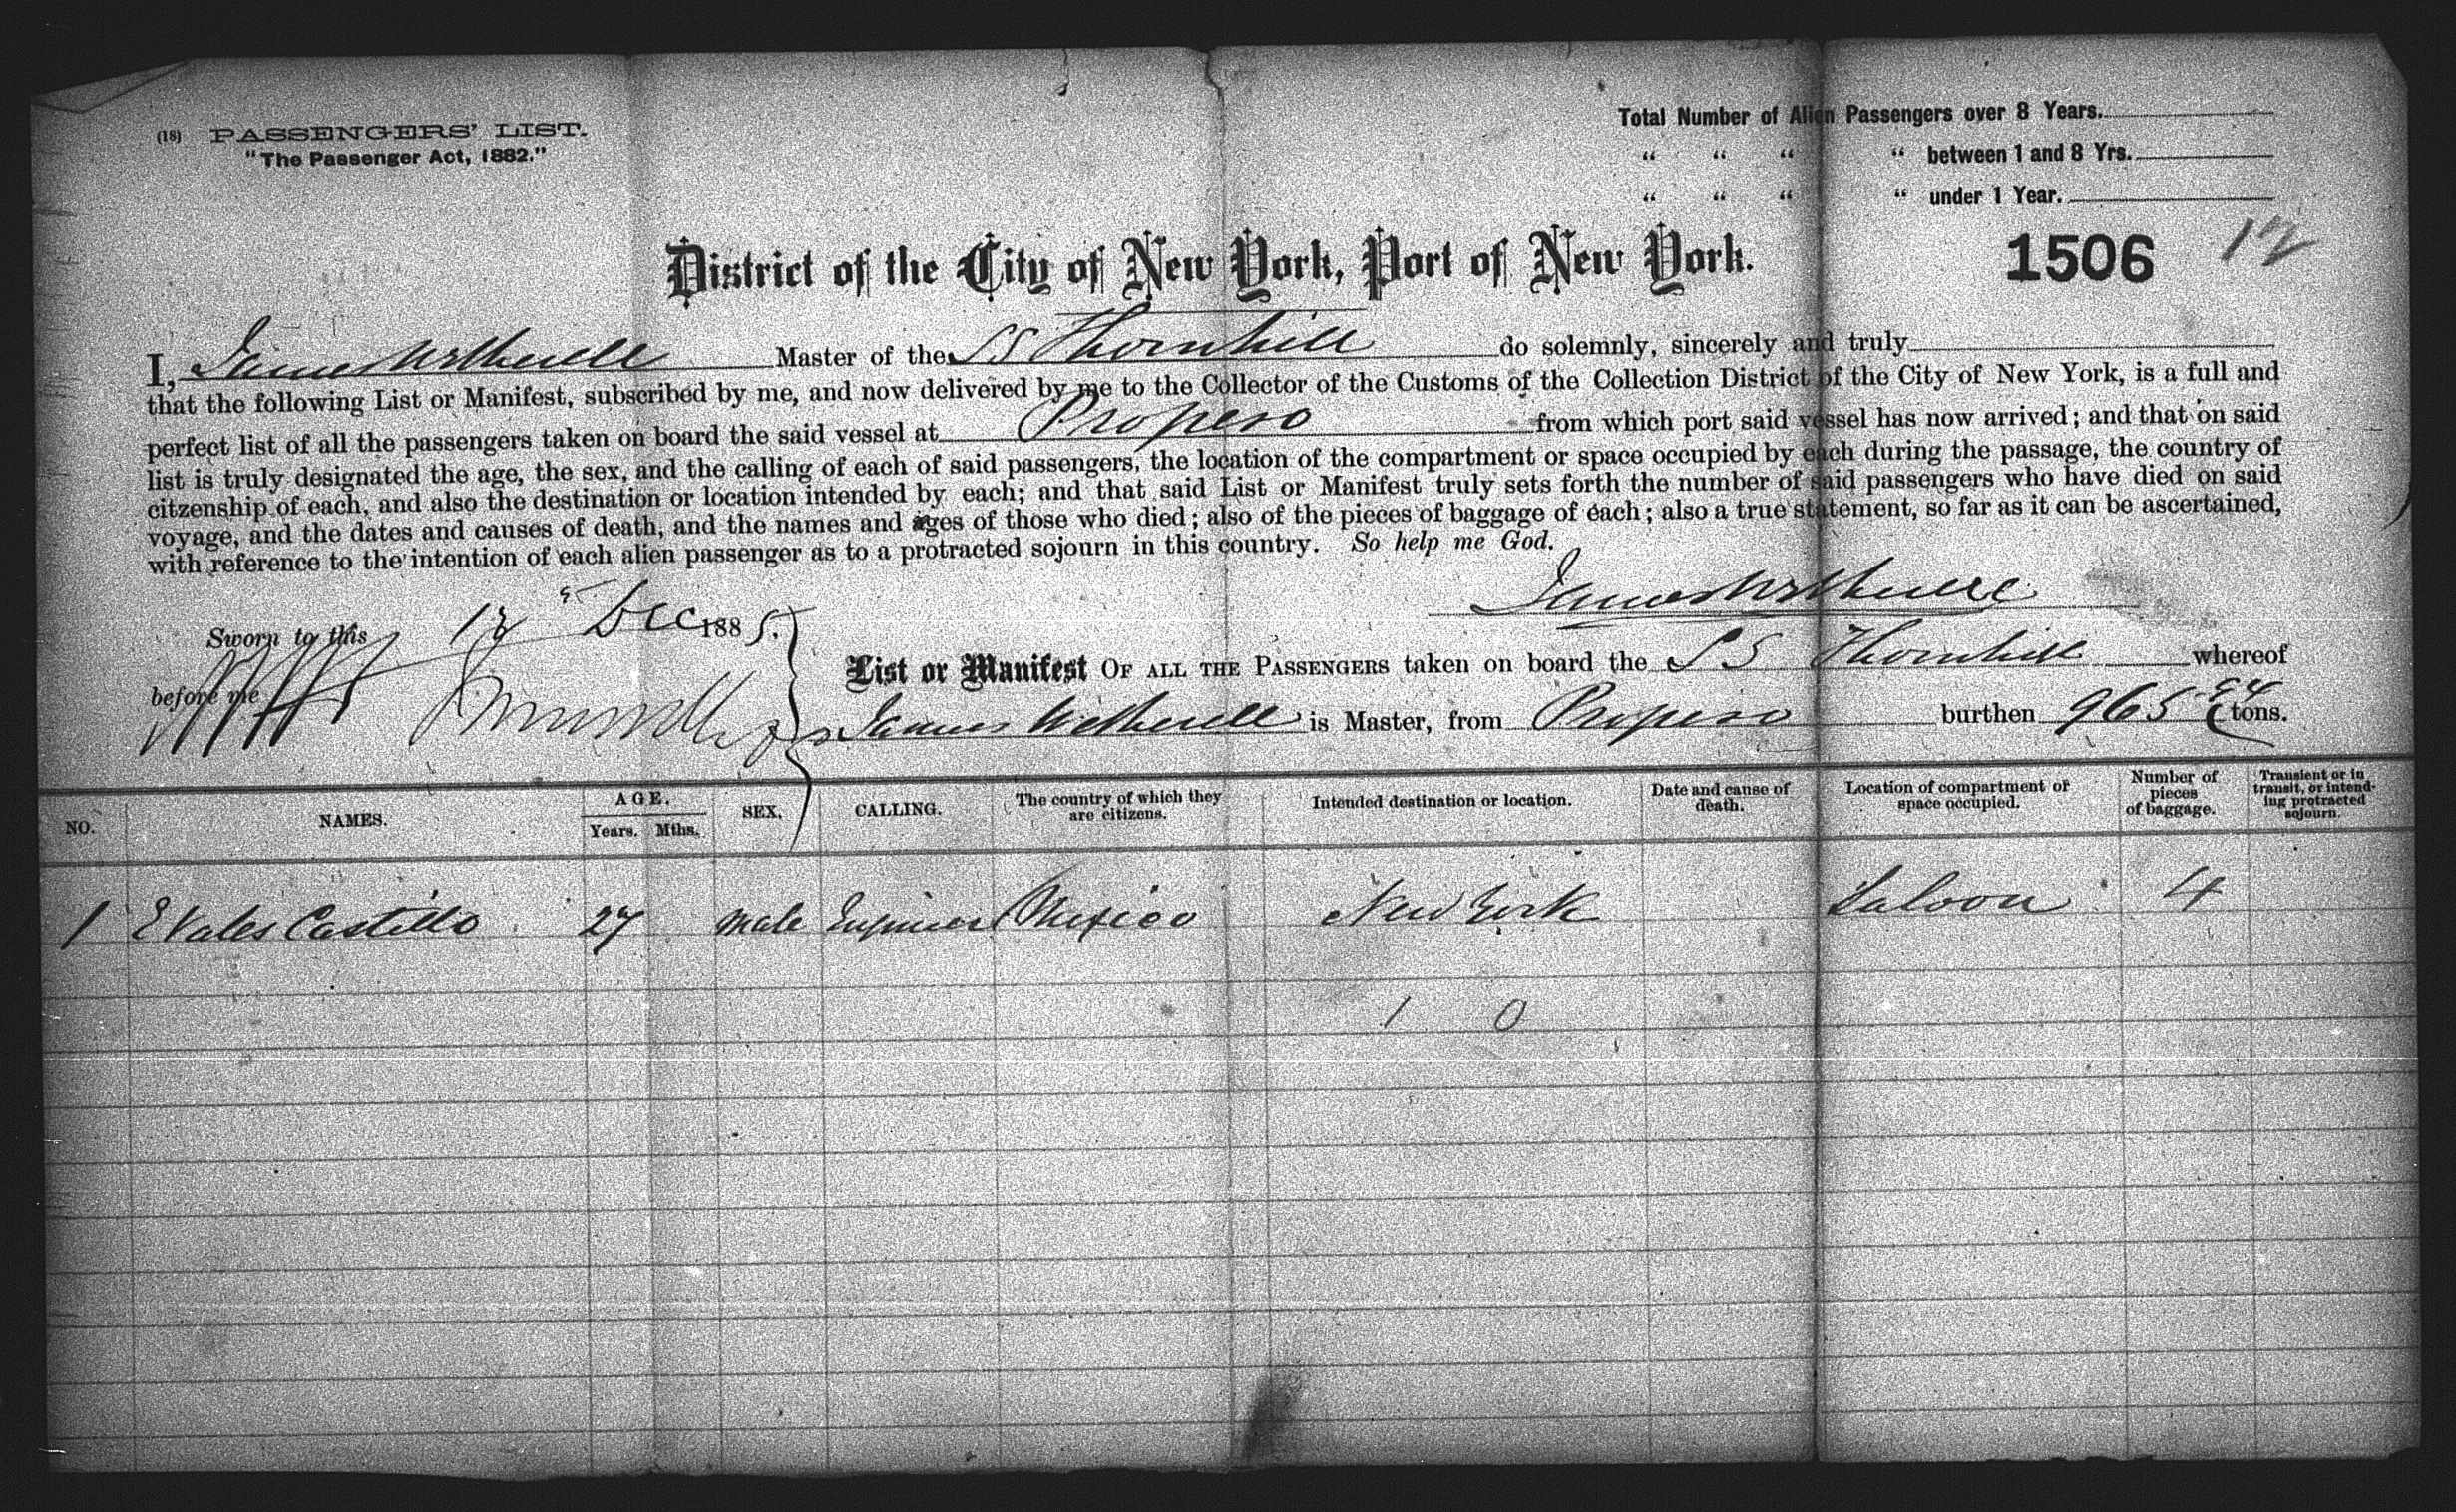 (18) PASSENGERS' LIST.
"The Passenger Act, 1882."
Total Number of Alien Passengers over 8 Years.
" " " " between 1 and 8 Yrs.
" " " " under 1 Year.
District of the City of New York, Port of New York.
1506 12
I, James Wetherell Master of the SS Thornhill do solemnly, sincerely and truly
that the following List or Manifest, subscribed by me, and now delivered by me to the Collector of the Customs of the Collection District of the City of New York, is a full and
perfect list of all the passengers taken on board the said vessel at Progreso from which port said vessel has now arrived; and that on said
list is truly designated the age, the sex, and the calling of each of said passengers, the location of the compartment or space occupied by each during the passage, the country of
citzenship of each, and also the destination or location intended by each; and that said List or Manifest truly sets forth the number of said passengers who have died on said
voyage, and the dates and causes of death, and the names and ages of those who died; also of the pieces of baggage of each; also a true statement, so far as it can be ascertained,
with reference to the intention of each alien passenger as to a protracted sojourn in this country. So help me God.
James Wetherell
Sworn to this Dec 1885.
before me
List or Manifest OF ALL THE PASSENGERS taken on board the SS Thornhill whereof
James Wetherell is Master, from Progreso burthen 965 tons.
NO. NAMES. AGE. Years. Mths. SEX. CALLING. The country of which they are citizens. Intended destination or location. Date and cause of death. Location of compartment or space occupied. Number of pieces of baggage. Transient or in transit, or intending protracted sojourn.
1 E Vales Castillo 27 Male Engineer Mexico New York Saloon 4
1 0